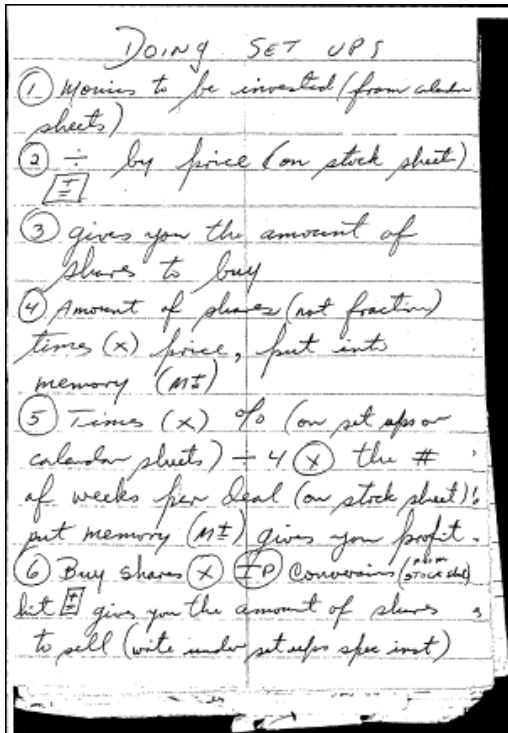 DOING SET UPS
① Monies to be invested (from calendar
sheets)
② ÷ by price (on stock sheet)
±
③ gives you the amount of
shares to buy
④ Amount of shares (not fraction)
times (x) price, put into
memory (M±)
⑤ Times (x) % (on set ups or
calendar sheets) ÷ 4 ⓧ the #
of weeks per deal (on stock sheet)
put memory (M±) gives you profit.
⑥ Buy shares ⓧ Conversions (FROM STOCK Sheet)
hit ± gives you the amount of shares
to sell (write under set ups spec inst)